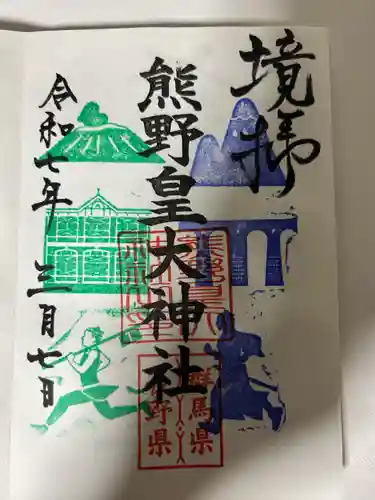 境拝
熊野皇大神社
令和七年 三月七日
群馬県
長野県